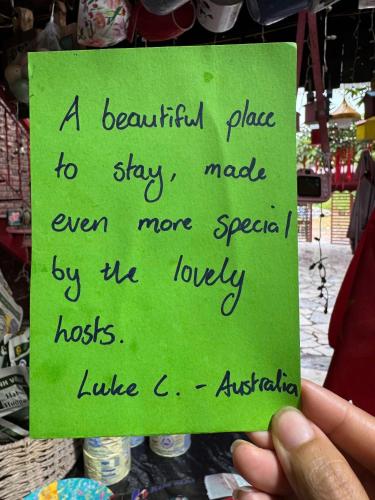 A beautiful place
to stay, made
even more special
by the lovely
hosts.
Luke C. - Australia